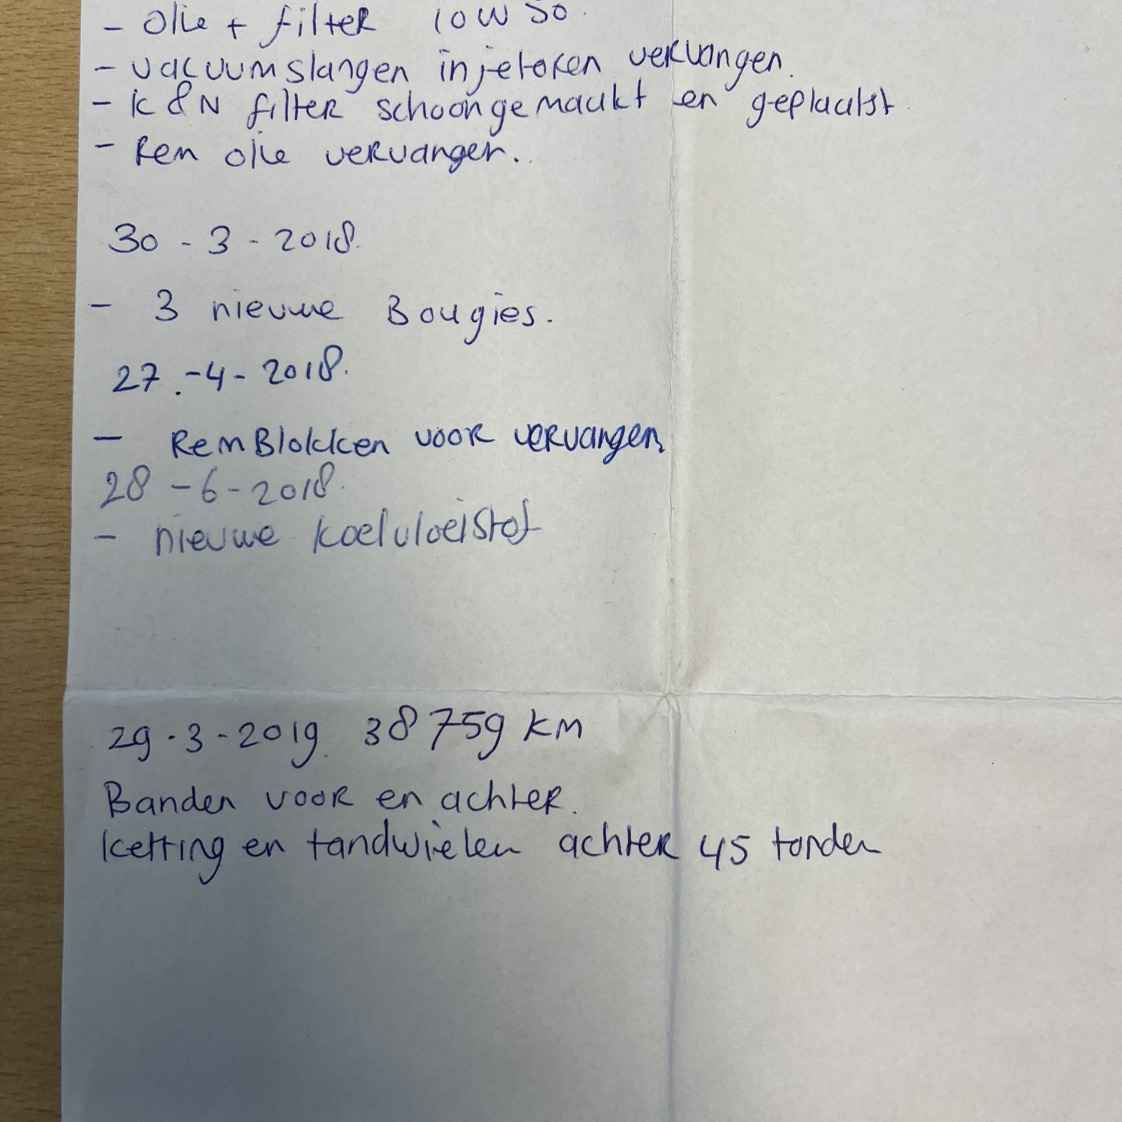 - Olie + filter 10W50.
- vacuumslangen injetoren vervangen.
- K&N filter schoongemaakt en geplaatst.
- Rem olie vervangen.
30-3-2018.
- 3 nieuwe Bougies.
27.-4-2018.
- RemBlokken voor vervangen.
28-6-2018.
- nieuwe koelvloeistof
29.3-2019. 38759 km
Banden voor en achter.
ketting en tandwielen achter 45 tanden